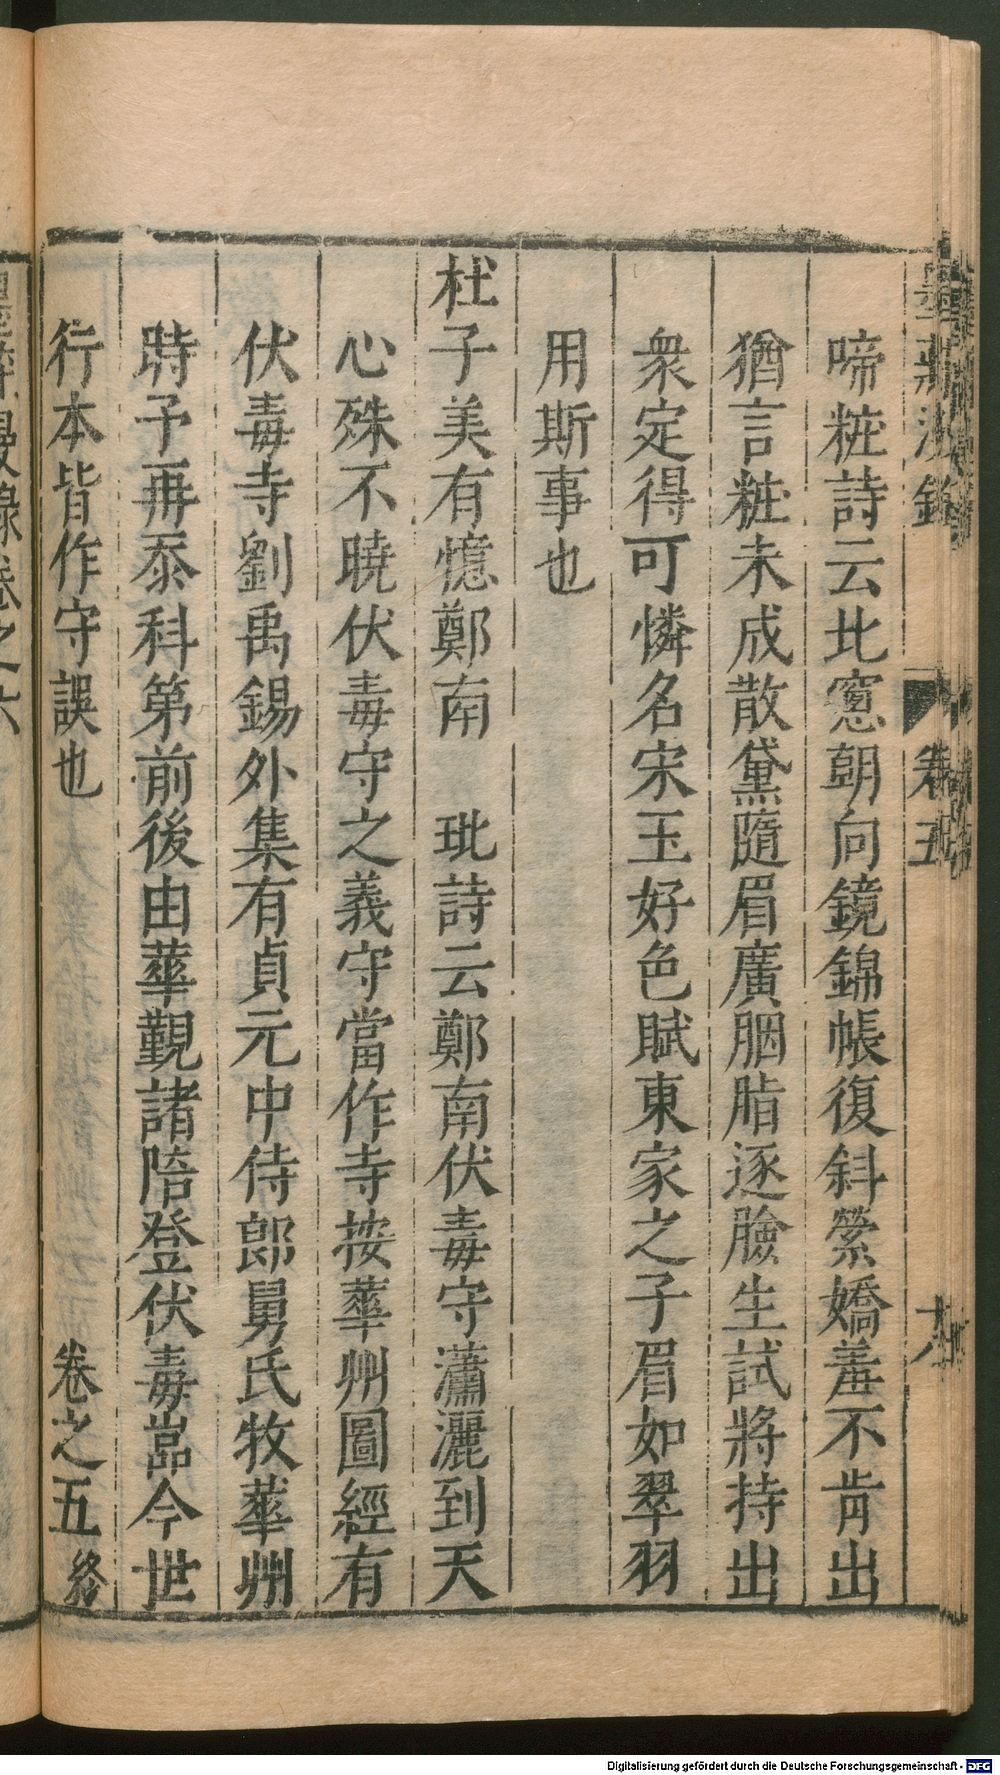 啼糚詩云北窻朝向鏡錦帳復斜縈嬌羞不肯出
猶言糚未成散黛隨眉廣胭脂逐臉生試將持出
衆定得可憐名宋玉好色賦東家之子眉如翠羽
用斯事也
杜子美有憶鄭南 玭詩云鄭南伏毒守瀟灑到天
心殊不曉伏毒守之義守當作寺按華州圖經有
伏毒寺劉禹錫外集有貞元中侍郎舅氏牧華州
時予再忝科第前後由華覲謁陪登伏毒嵓今世
行本皆作守誤也 卷之五終
卷五
漫錄卷之六
Digitalisierung gefördert durch die Deutsche Forschungsgemeinschaft - DFG